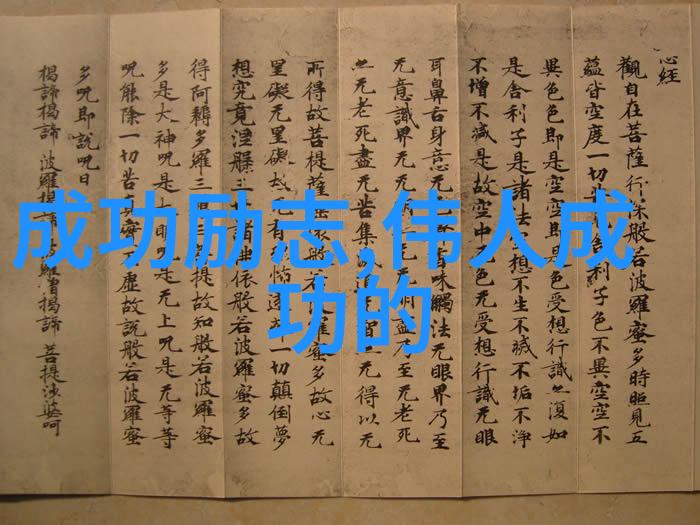 成功励志,伟人成
功的
心经
觀自在菩薩行深般若波羅蜜多時照見五
蘊皆空度一切舍利子色不異空空不
異色色即是空空即是色受想行識亦復如
是舍利子是諸法空想不生不滅不垢不淨
不增不減是故空中无色无受想行識无眼
耳鼻舌身意无香味觸法无眼界乃至
无意識界无无明盡乃至无老死
亦无老死盡无苦集滅道无智亦无得以无
所得故菩提薩埵依般若波羅蜜多故心无
罣礙无罣礙故无有怖遠一切顛倒夢
想究竟涅槃三諸佛依般若波羅蜜多故
得阿耨多羅三三菩提故知般若波羅蜜
多是大神呪是上明呪是无上呪是无等等
呪能除一切苦真實不虛故說般若波羅蜜
多呪即說呪曰
揭諦揭諦 波羅揭諦 波羅僧揭諦 菩提婆呵